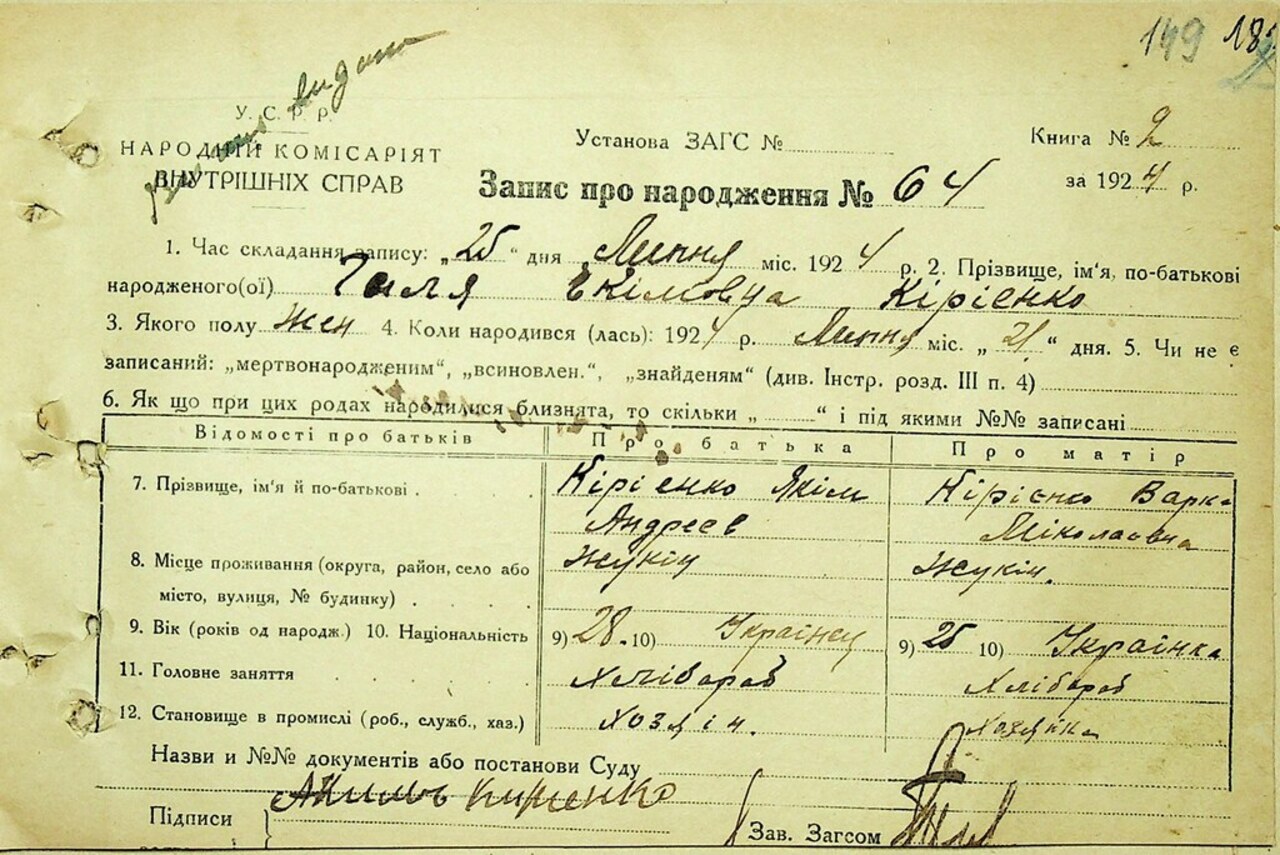 149 18
видано
У. С. Р. Р.
НАРОДНІЙ КОМІСАРІЯТ
ВНУТРІШНІХ СПРАВ
Установа ЗАГС №
Книга № 2
за 1924 р.
Запис про народження № 64
1. Час складання запису: „25“ дня Липня міс. 1924 р. 2. Прізвище, ім'я, по-батькові
народженого(ої) Галя Екімовна Кірієнко
3. Якого полу жен 4. Коли народився (лась): 1924 р. Липня міс. „21“ дня. 5. Чи не є
записаний: „мертвонародженим“, „всиновлен.“, „знайденям“ (див. Інстр. розд. III п. 4)
6. Як що при цих родах народилися близнята, то скільки „ “ і під якими №№ записані
Відомості про батьків Про батька Про матір
7. Прізвище, ім'я й по-батькові . Кірієнко Якім Кірієнко Варка
Андреев Міколаовна
8. Місце проживання (округа, район, село або Жукін Жукін.
місто, вулиця, № будинку) .
9. Вік (років од народж.) 10. Національність 9) 28. 10) Українец 9) 25 10) Українка
11. Головне заняття Хлібораб Хлібораб
12. Становище в промислі (роб., служб., хаз.) Хозяін. Хозяйка
Назви и №№ документів або постанови Суду
Кириенко
Підписи
Зав. Загсом